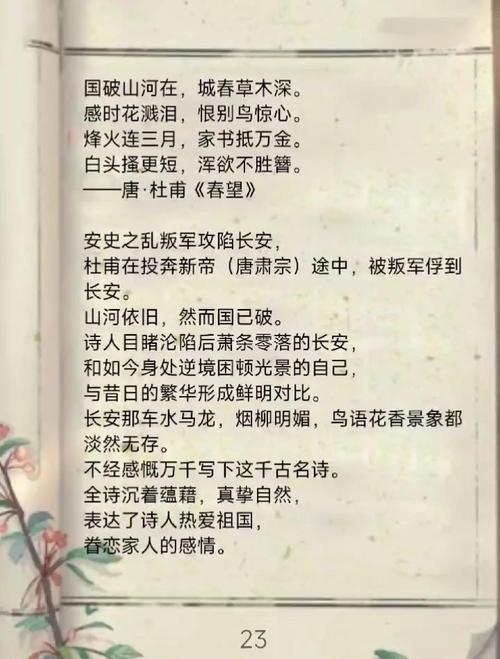 国破山河在，城春草木深。
感时花溅泪，恨别鸟惊心。
烽火连三月，家书抵万金。
白头搔更短，浑欲不胜簪。
——唐·杜甫《春望》
安史之乱叛军攻陷长安，
杜甫在投奔新帝（唐肃宗）途中，被叛军俘到
长安。
山河依旧，然而国已破。
诗人目睹沦陷后萧条零落的长安，
和如今身处逆境困顿光景的自己，
与昔日的繁华形成鲜明对比。
长安那车水马龙，烟柳明媚，鸟语花香景象都
淡然无存。
不经感慨万千写下这千古名诗。
全诗沉着蕴藉，真挚自然，
表达了诗人热爱祖国，
眷恋家人的感情。
23